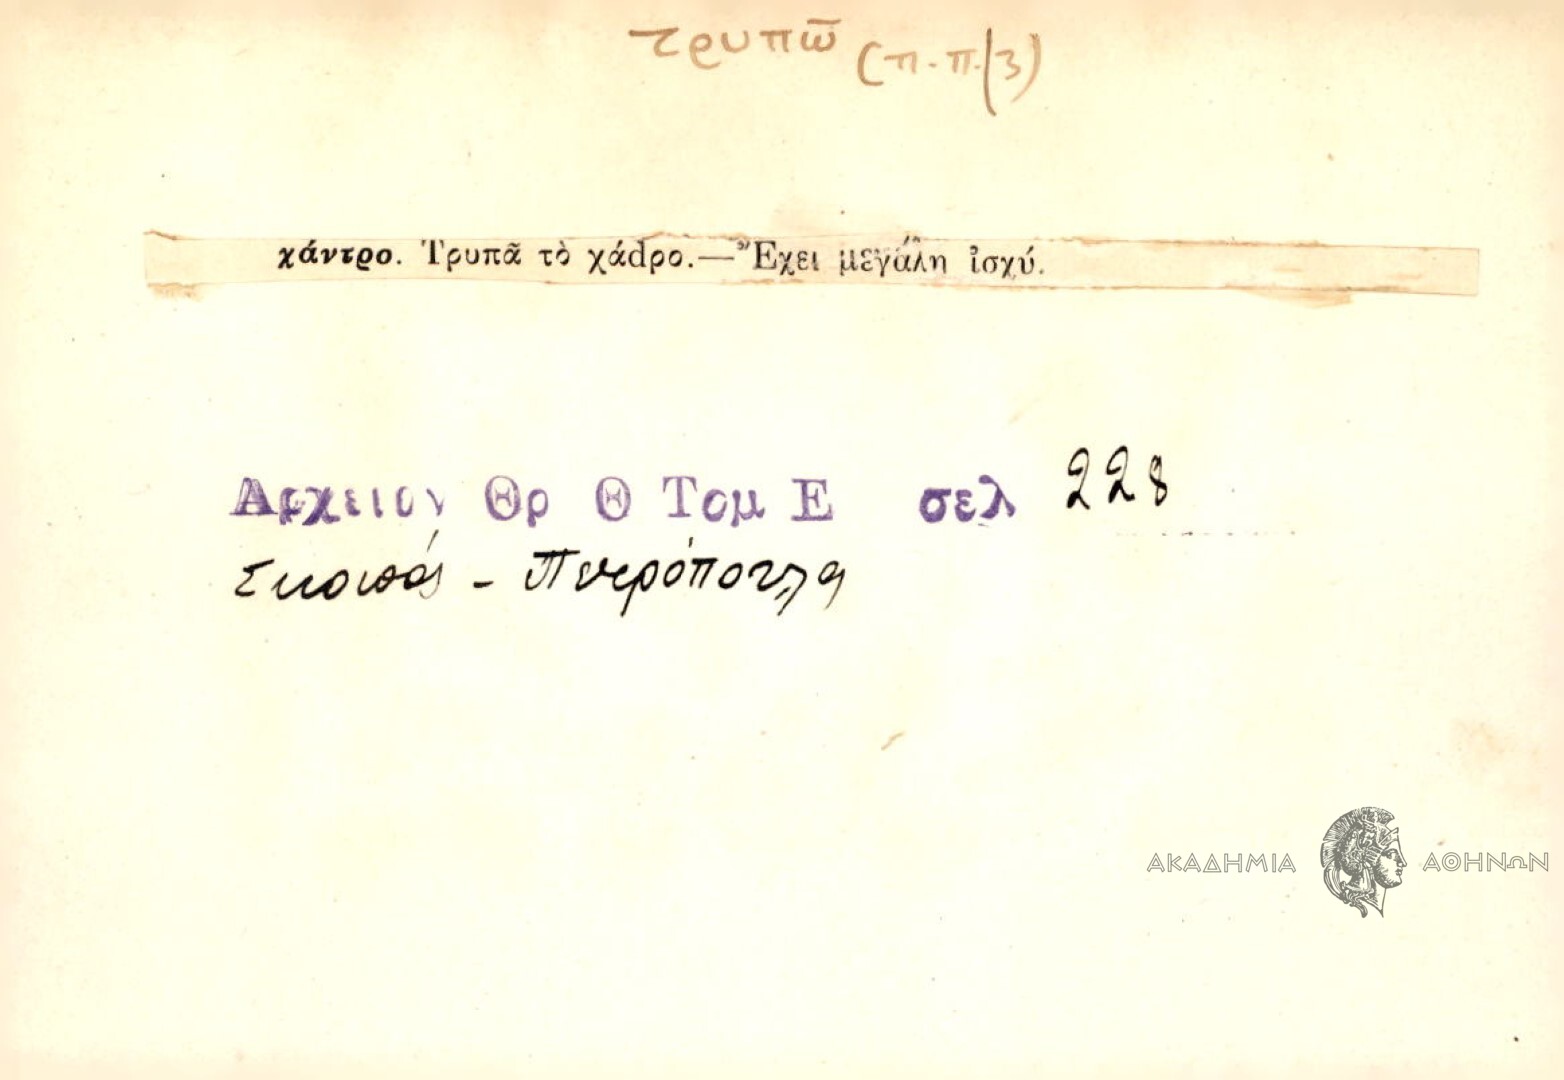 τρυπῶ (π.π./3)
χάντρο. Τρυπᾶ τὸ χάdρο.—Ἔχει μεγάλη ἰσχύ.
Αρχειον Θρ Θ Τομ Ε σελ 228
Σκοπός - Πετρόπουλα
ΑΚΑΔΗΜΙΑ ΑΘΗΝΩΝ